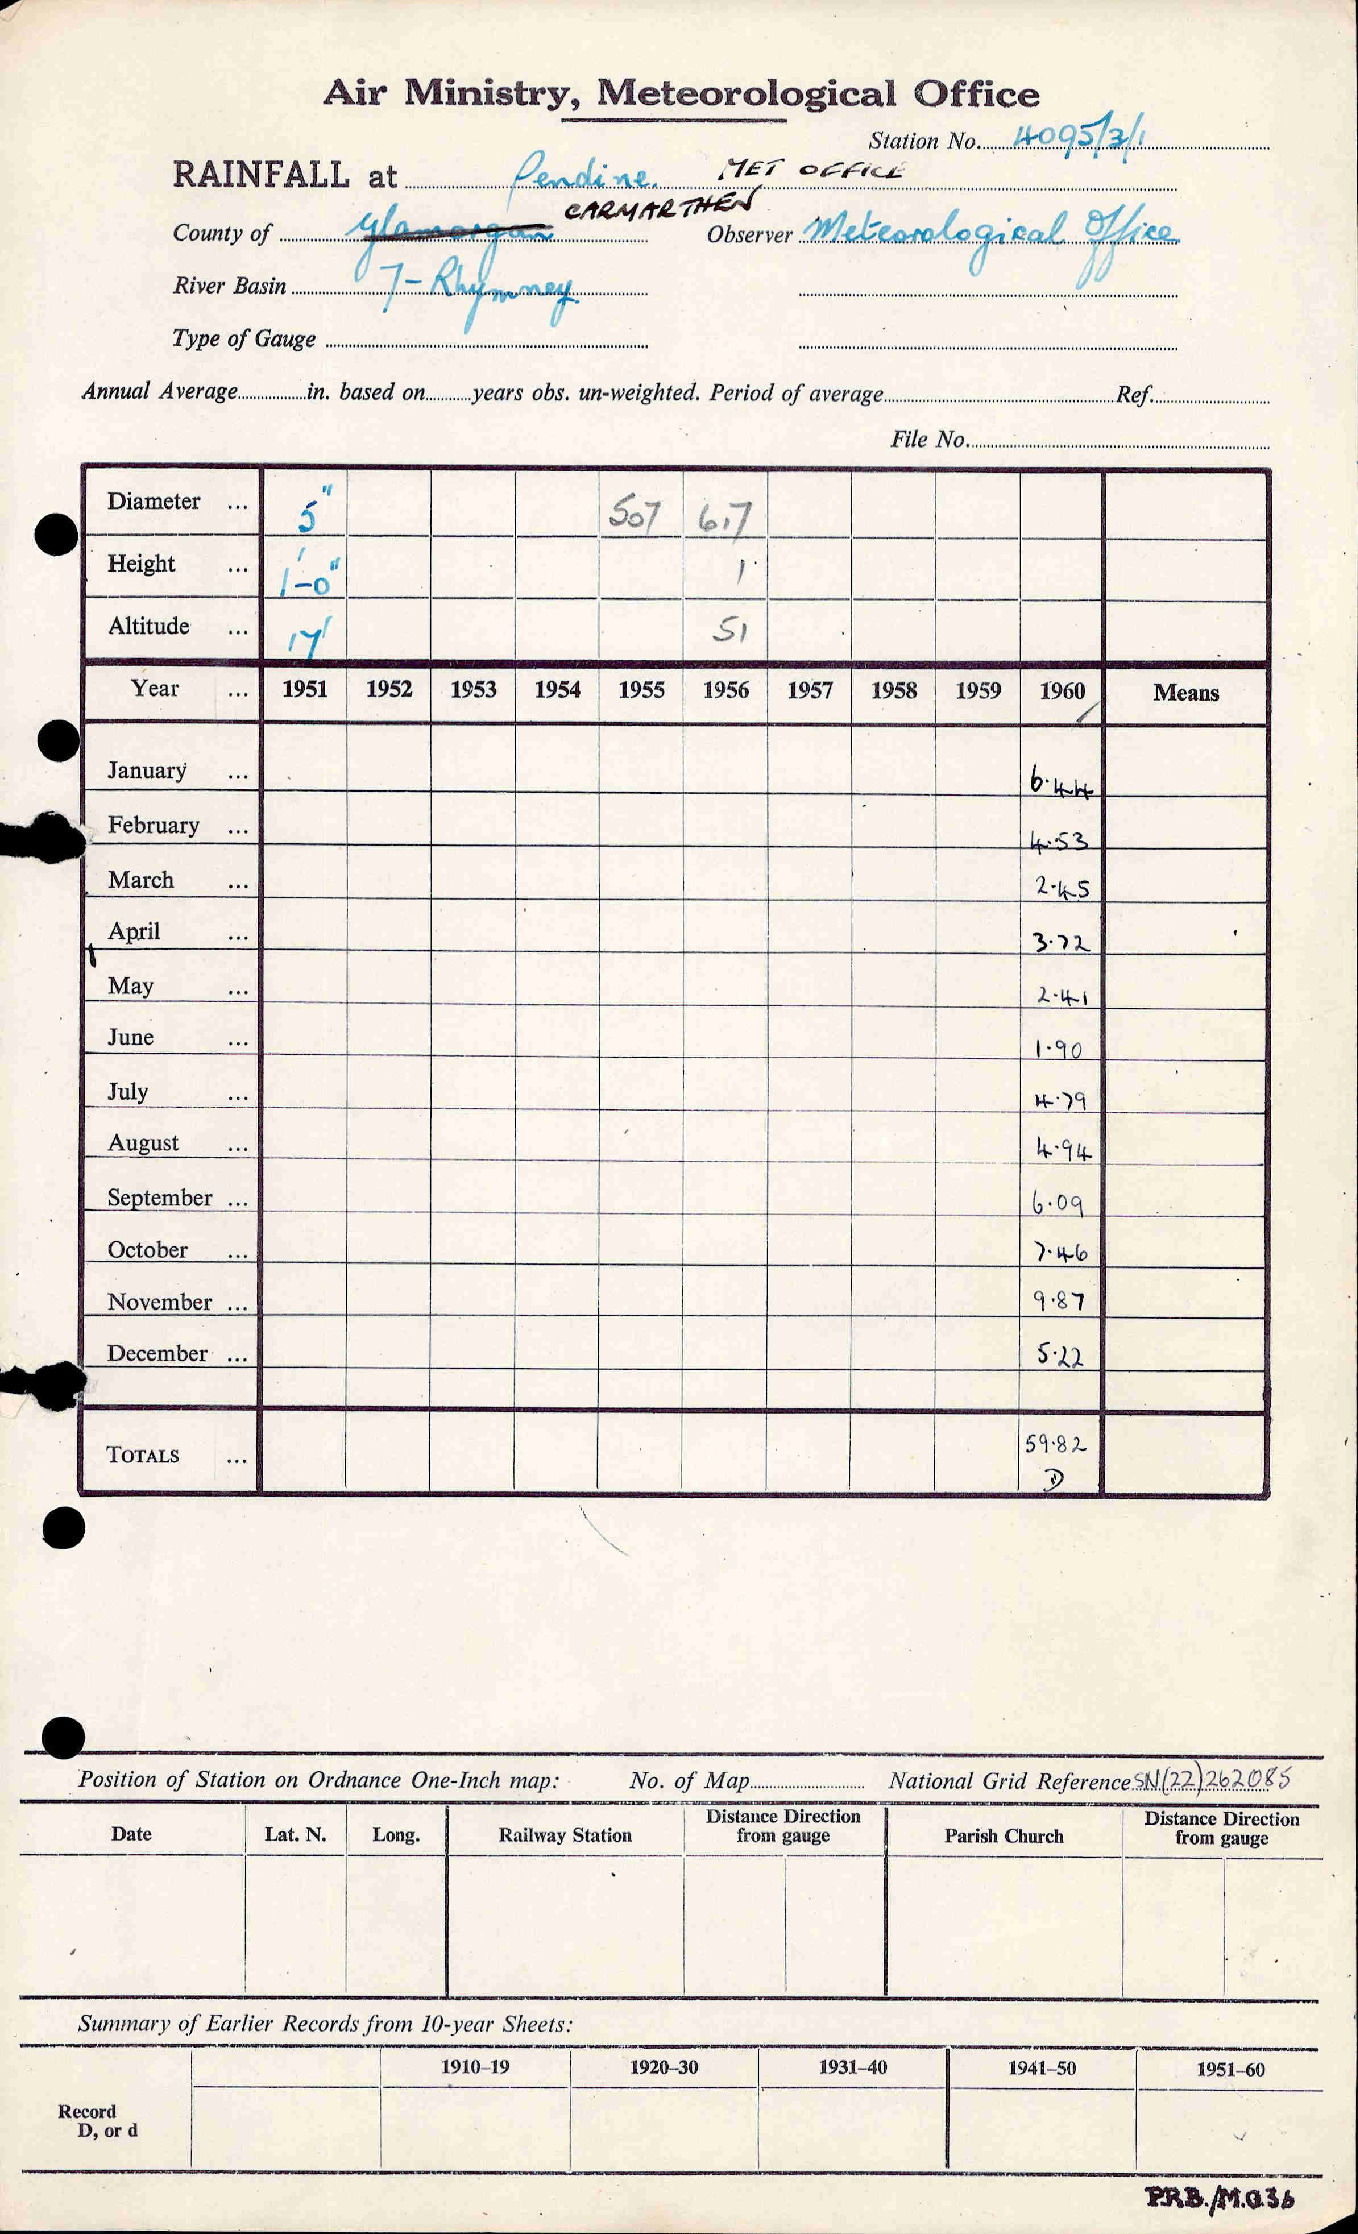 Air Ministry, Meteorological Office
Station No. 4095/3/1
RAINFALL at Pendine. MET OFFICE
County of Glamorgan CARMARTHEN Observer Meteorological Office
River Basin 7-Rhymney
Type of Gauge
Annual Average in. based on years obs. un-weighted. Period of average Ref.
File No.
Diameter ... 5" 507 617
Height ... 1'-0" 1
Altitude ... 17' 51
Year ... 1951 1952 1953 1954 1955 1956 1957 1958 1959 1960 Means
January ... 6.44
February ... 4.53
March ... 2.45
April ... 3.72
May ... 2.41
June ... 1.90
July ... 4.79
August ... 4.94
September ... 6.09
October ... 7.46
November ... 9.87
December ... 5.22
TOTALS ... 59.82
D
Position of Station on Ordnance One-Inch map: No. of Map National Grid Reference SN(22)262085
Date Lat. N. Long. Railway Station Distance Direction from gauge Parish Church Distance Direction from gauge
Summary of Earlier Records from 10-year Sheets:
1910–19 1920–30 1931–40 1941–50 1951–60
Record
D, or d
P.R.B./M.O.36